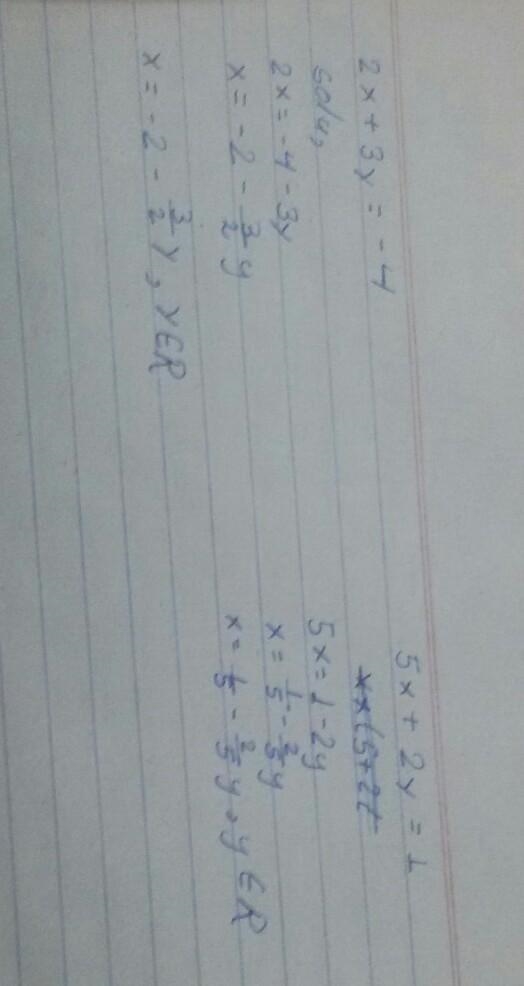 2x + 3y = -4
soln,
2x = -4 - 3y
x = -2 - 3/2 y
x = -2 - 3/2 y, y ∈ R
5x + 2y = 1
5x = 1 - 2y
x = 1/5 - 2/5 y
x = 1/5 - 2/5 y, y ∈ R